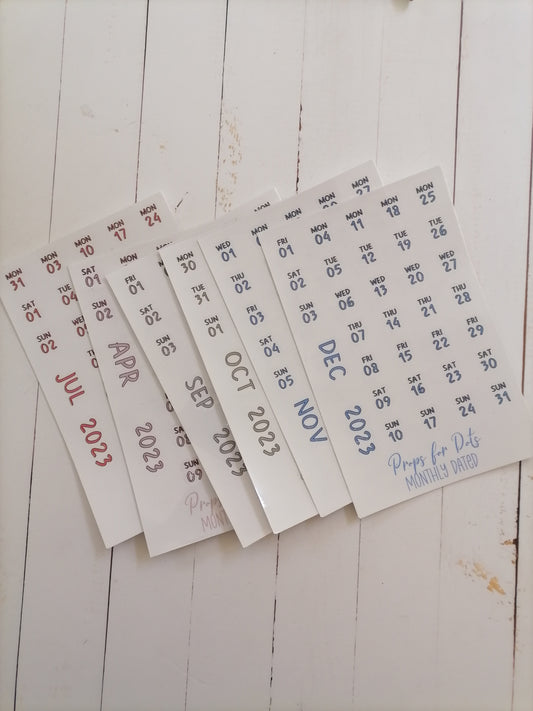 MON MON MON MON MON
31 03 10 17 24
SAT
01 04
SUN
02
JUL 2023
SAT
01
SUN
02
APR 2023
SAT
08
SUN
09
MONTHLY
FRI
01
SAT
02
SUN
03
SEP 2023
MON
30
TUE
31
SUN
01
OCT 2023
WED MON MON MON
01 27
THU
02
FRI
03
SAT
04
SUN
05
NOV
FRI MON MON MON MON
01 04 11 18 25
SAT TUE TUE TUE TUE
02 05 12 19 26
SUN WED WED WED WED
03 06 13 20 27
THU THU THU THU
07 14 21 28
FRI FRI FRI FRI
08 15 22 29
SAT SAT SAT SAT
09 16 23 30
SUN SUN SUN SUN
10 17 24 31
DEC 2023
Props for Dots
MONTHLY DATED